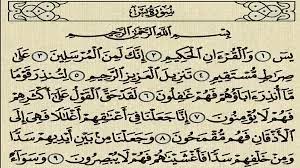 سورة يس
بِسْمِ اللَّهِ الرَّحْمَٰنِ الرَّحِيمِ
يسٓ ١ وَالْقُرْءَانِ الْحَكِيمِ ٢ إِنَّكَ لَمِنَ الْمُرْسَلِينَ ٣ عَلَىٰ
صِرَاطٍ مُّسْتَقِيمٍ ٤ تَنزِيلَ الْعَزِيزِ الرَّحِيمِ ٥ لِتُنذِرَ قَوْمًا
مَّا أُنذِرَ ءَابَاؤُهُمْ فَهُمْ غَافِلُونَ ٦ لَقَدْ حَقَّ الْقَوْلُ عَلَىٰ أَكْثَرِهِمْ
فَهُمْ لَا يُؤْمِنُونَ ٧ إِنَّا جَعَلْنَا فِي أَعْنَاقِهِمْ أَغْلَالًا فَهِيَ إِلَى
الْأَذْقَانِ فَهُم مُّقْمَحُونَ ٨ وَجَعَلْنَا مِن بَيْنِ أَيْدِيهِمْ سَدًّا
وَمِنْ خَلْفِهِمْ سَدًّا فَأَغْشَيْنَاهُمْ فَهُمْ لَا يُبْصِرُونَ ٩ وَسَوَاءٌ